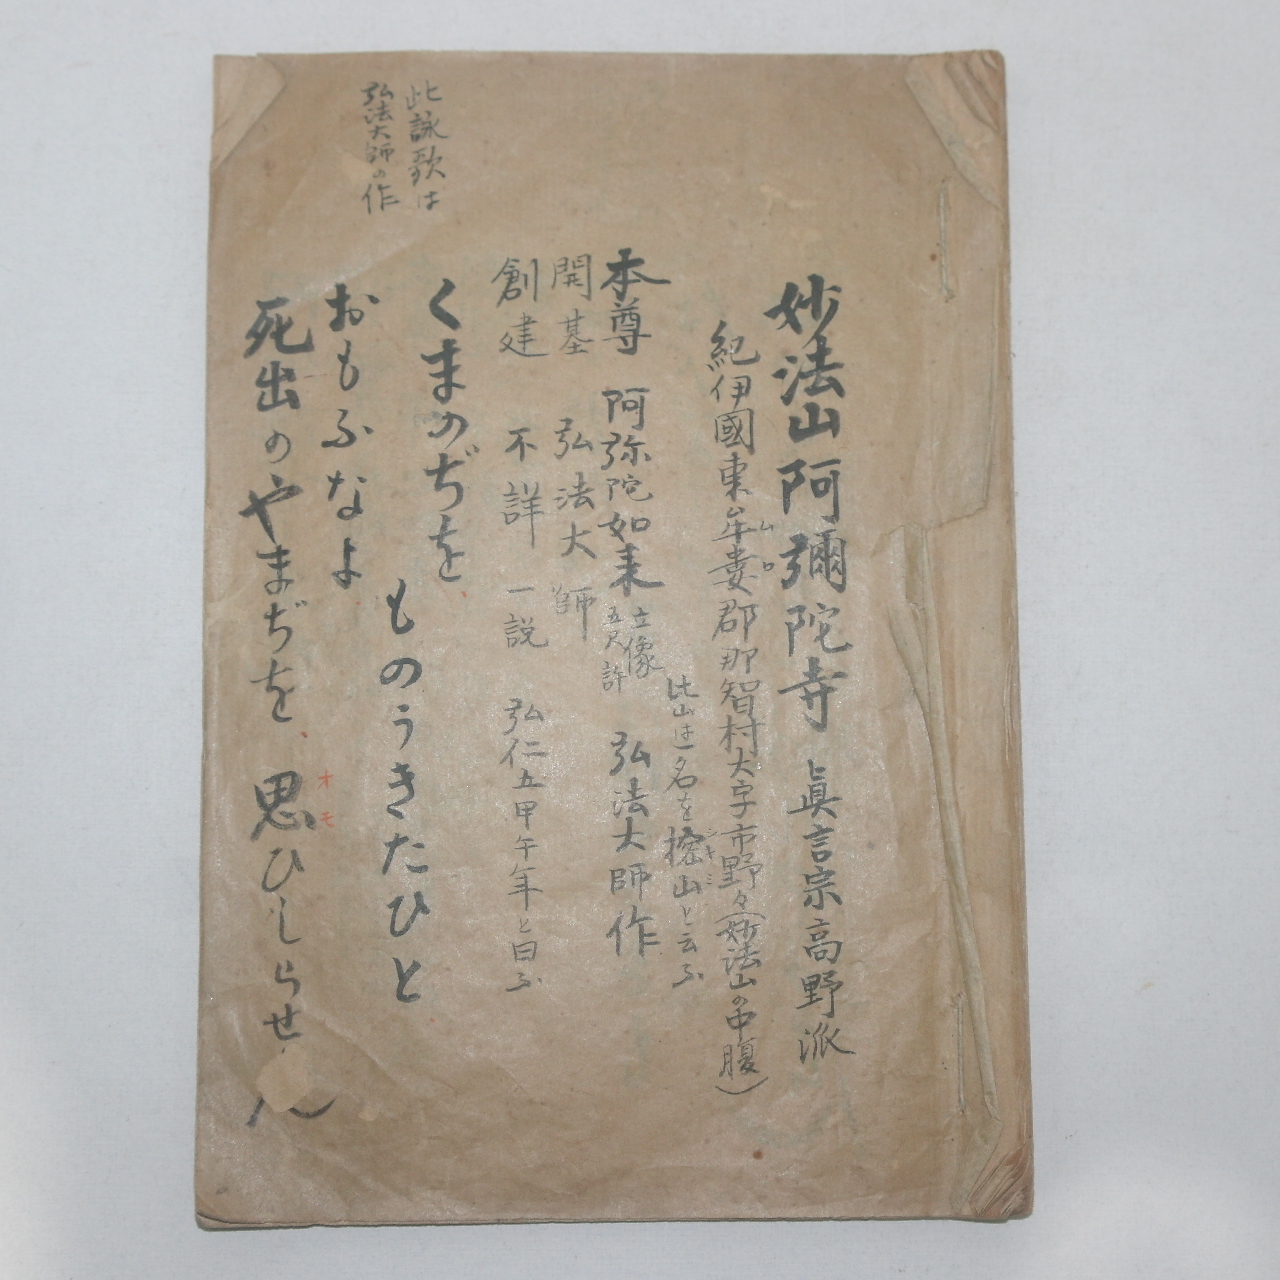 妙法山阿彌陀寺 眞言宗高野派
紀伊國東牟婁郡那智村大字市野々(妙法山の中腹)
ムロ
此山は一名を樒山と云ふ
シキミ
本尊 阿弥陀如来 立像五尺許 弘法大師作
開基 弘法大師
創建 不詳 一説 弘仁五甲午年と曰ふ
此詠歌は
弘法大師の作
くまのぢを
ものうきたひと
おもふなよ
死出のやまぢを 思ひしらせん
オモ